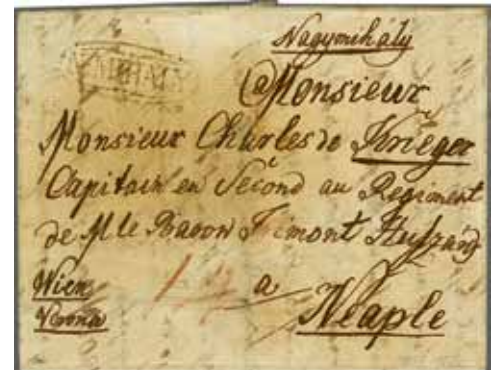 Nagymihály
a Monsieur
Monsieur Charles de Krieger
Capitain en Second au Regiment
de M le Baron Frimont
Wien
a
Verona
Neaple